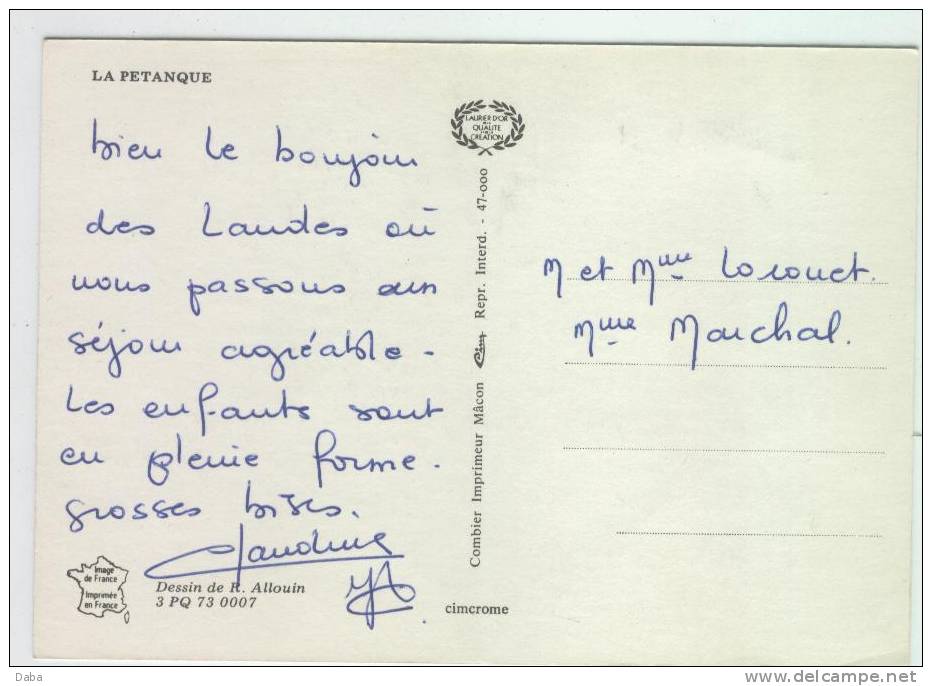 LA PETANQUE
bien le bonjour
des Landes où
nous passons un
séjour agréable.
Les enfants sont
en pleine forme.
grosses bises.
Claudine
Image
de France
Imprimée
en France
Dessin de R. Allouin
3 PQ 73 0007
cimcrome
LAURIER D'OR
DE LA
QUALITE
CREATION
Combier Imprimeur Mâcon Cim Repr. Interd. - 47-000
M et Mme Locouet.
Mme Marchal.
Daba
www.delcampe.net